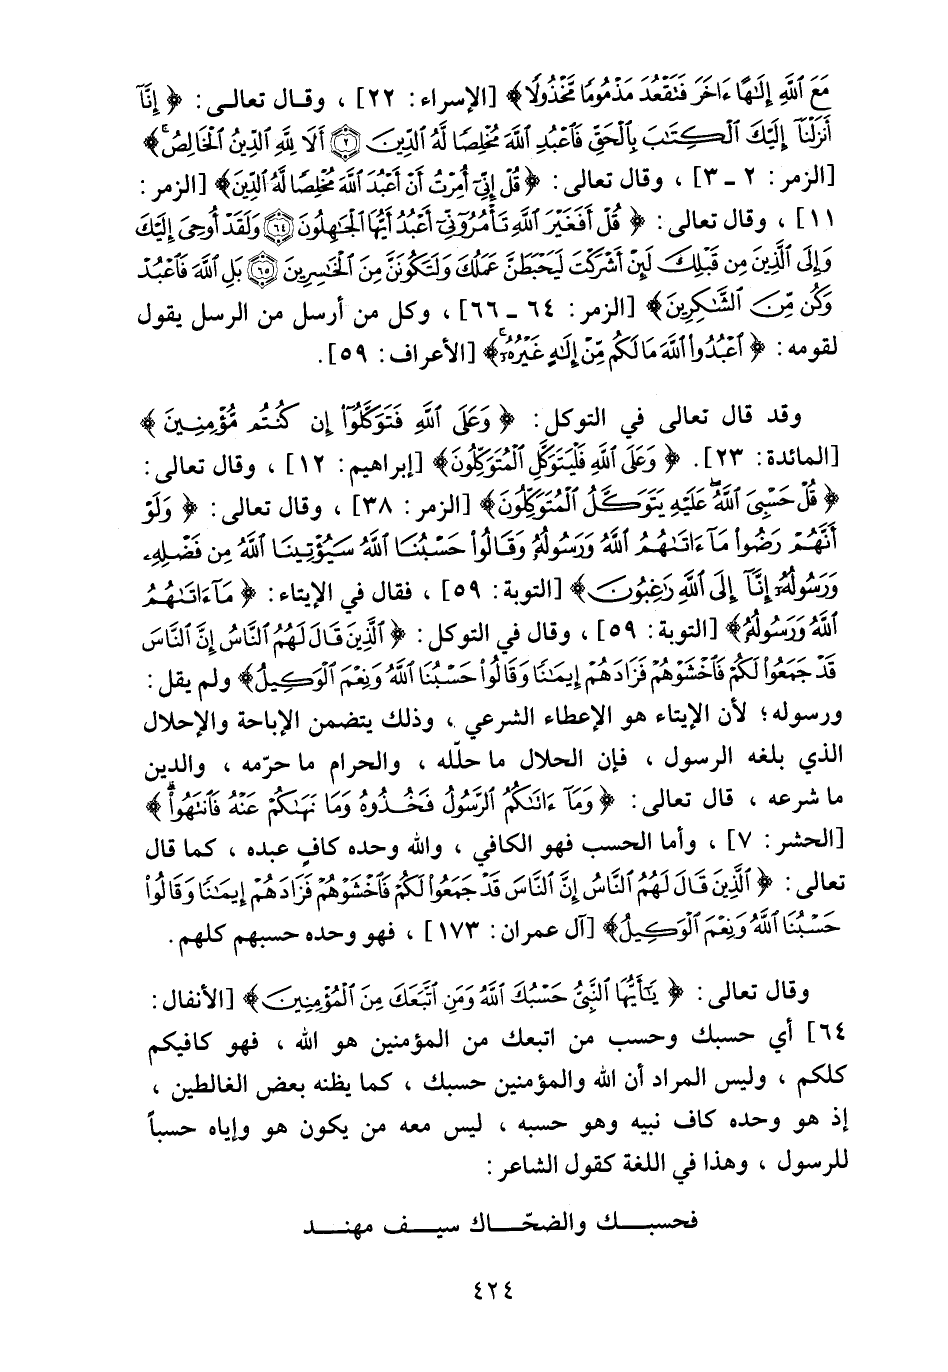 مَعَ ٱللَّهِ إِلَٰهًا ءَاخَرَ فَتَقْعُدَ مَذْمُومًا مَّخْذُولًا﴾ [الإسراء: ٢٢] ، وقال تعالى: ﴿ إِنَّآ
أَنزَلْنَآ إِلَيْكَ ٱلْكِتَٰبَ بِٱلْحَقِّ فَٱعْبُدِ ٱللَّهَ مُخْلِصًا لَّهُ ٱلدِّينَ ۝٢ أَلَا لِلَّهِ ٱلدِّينُ ٱلْخَالِصُ ۚ ﴾
[الزمر: ٢ ـ ٣] ، وقال تعالى: ﴿ قُلْ إِنِّىٓ أُمِرْتُ أَنْ أَعْبُدَ ٱللَّهَ مُخْلِصًا لَّهُ ٱلدِّينَ﴾ [الزمر:
١١] ، وقال تعالى: ﴿ قُلْ أَفَغَيْرَ ٱللَّهِ تَأْمُرُوٓنِّىٓ أَعْبُدُ أَيُّهَا ٱلْجَٰهِلُونَ ۝٦٤ وَلَقَدْ أُوحِىَ إِلَيْكَ
وَإِلَى ٱلَّذِينَ مِن قَبْلِكَ لَئِنْ أَشْرَكْتَ لَيَحْبَطَنَّ عَمَلُكَ وَلَتَكُونَنَّ مِنَ ٱلْخَٰسِرِينَ ۝٦٥ بَلِ ٱللَّهَ فَٱعْبُدْ
وَكُن مِّنَ ٱلشَّٰكِرِينَ﴾ [الزمر: ٦٤ ـ ٦٦] ، وكل من أرسل من الرسل يقول
لقومه: ﴿ ٱعْبُدُوا۟ ٱللَّهَ مَا لَكُم مِّنْ إِلَٰهٍ غَيْرُهُۥٓ ۚ ﴾ [الأعراف: ٥٩].
وقد قال تعالى في التوكل: ﴿ وَعَلَى ٱللَّهِ فَتَوَكَّلُوٓا۟ إِن كُنتُم مُّؤْمِنِينَ ﴾
[المائدة: ٢٣]. ﴿ وَعَلَى ٱللَّهِ فَلْيَتَوَكَّلِ ٱلْمُتَوَكِّلُونَ﴾ [إبراهيم: ١٢] ، وقال تعالى:
﴿ قُلْ حَسْبِىَ ٱللَّهُ ۖ عَلَيْهِ يَتَوَكَّلُ ٱلْمُتَوَكِّلُونَ﴾ [الزمر: ٣٨] ، وقال تعالى: ﴿ وَلَوْ
أَنَّهُمْ رَضُوا۟ مَآ ءَاتَىٰهُمُ ٱللَّهُ وَرَسُولُهُۥ وَقَالُوا۟ حَسْبُنَا ٱللَّهُ سَيُؤْتِينَا ٱللَّهُ مِن فَضْلِهِۦ
وَرَسُولُهُۥٓ إِنَّآ إِلَى ٱللَّهِ رَٰغِبُونَ ﴾ [التوبة: ٥٩] ، فقال في الإيتاء: ﴿ مَآ ءَاتَىٰهُمُ
ٱللَّهُ وَرَسُولُهُۥ﴾ [التوبة: ٥٩] ، وقال في التوكل: ﴿ ٱلَّذِينَ قَالَ لَهُمُ ٱلنَّاسُ إِنَّ ٱلنَّاسَ
قَدْ جَمَعُوا۟ لَكُمْ فَٱخْشَوْهُمْ فَزَادَهُمْ إِيمَٰنًا وَقَالُوا۟ حَسْبُنَا ٱللَّهُ وَنِعْمَ ٱلْوَكِيلُ﴾ ولم يقل:
ورسوله؛ لأن الإيتاء هو الإعطاء الشرعي ، وذلك يتضمن الإباحة والإحلال
الذي بلغه الرسول ، فإن الحلال ما حلّله ، والحرام ما حرّمه ، والدين
ما شرعه ، قال تعالى: ﴿ وَمَآ ءَاتَىٰكُمُ ٱلرَّسُولُ فَخُذُوهُ وَمَا نَهَىٰكُمْ عَنْهُ فَٱنتَهُوا۟ ۚ ﴾
[الحشر: ٧] ، وأما الحسب فهو الكافي ، والله وحده كافٍ عبده ، كما قال
تعالى: ﴿ ٱلَّذِينَ قَالَ لَهُمُ ٱلنَّاسُ إِنَّ ٱلنَّاسَ قَدْ جَمَعُوا۟ لَكُمْ فَٱخْشَوْهُمْ فَزَادَهُمْ إِيمَٰنًا وَقَالُوا۟
حَسْبُنَا ٱللَّهُ وَنِعْمَ ٱلْوَكِيلُ﴾ [آل عمران: ١٧٣] ، فهو وحده حسبهم كلهم.
وقال تعالى: ﴿ يَٰٓأَيُّهَا ٱلنَّبِىُّ حَسْبُكَ ٱللَّهُ وَمَنِ ٱتَّبَعَكَ مِنَ ٱلْمُؤْمِنِينَ﴾ [الأنفال:
٦٤] أي حسبك وحسب من اتبعك من المؤمنين هو الله ، فهو كافيكم
كلكم ، وليس المراد أن الله والمؤمنين حسبك ، كما يظنه بعض الغالطين ،
إذ هو وحده كاف نبيه وهو حسبه ، ليس معه من يكون هو وإياه حسباً
للرسول ، وهذا في اللغة كقول الشاعر:
فحسبـــك والضحّـــاك سيـــف مهنـــد
٤٢٤